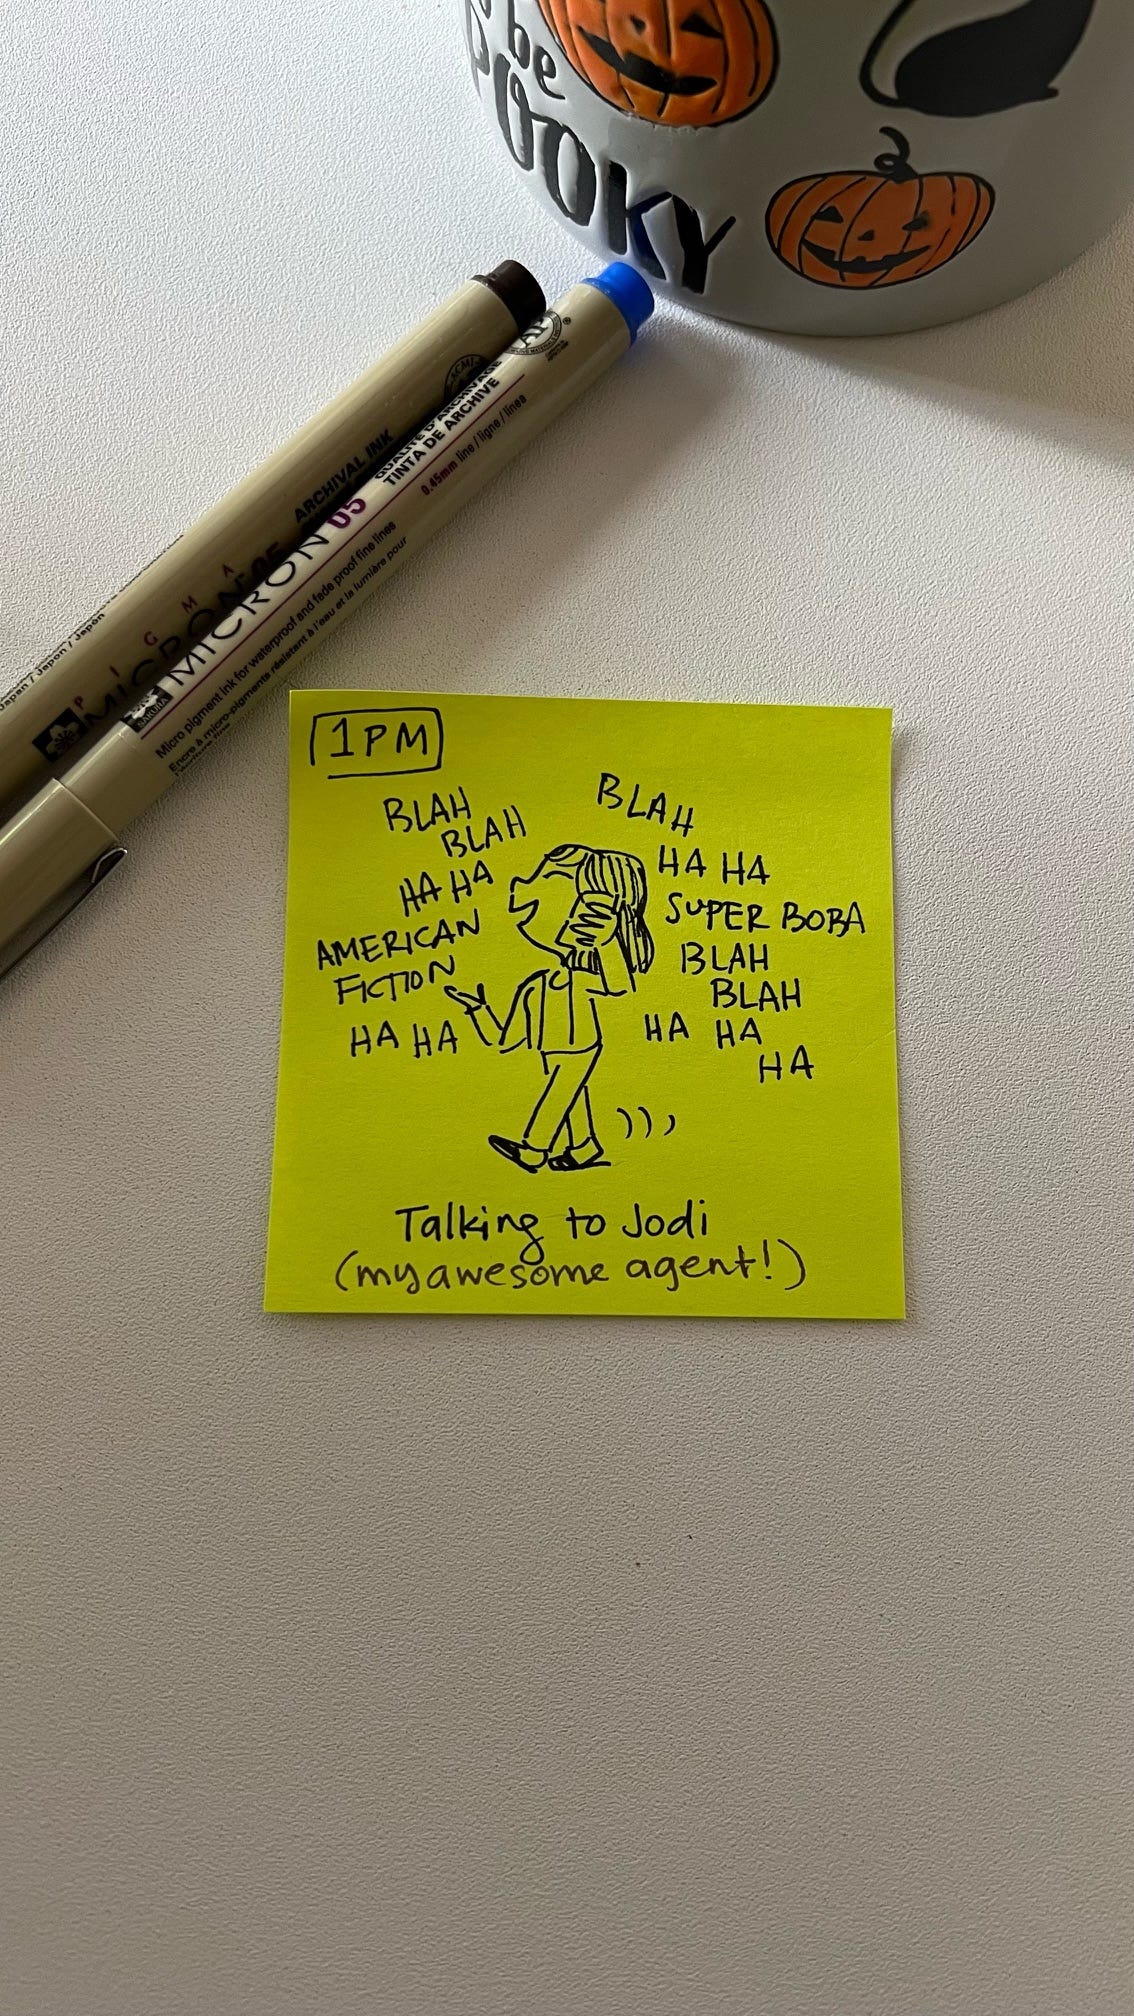 be
SPOOKY
ARCHIVAL INK
QUALITÉ D'ARCHIVAGE
TINTA DE ARCHIVE
0.45mm line / ligne / línea
PIGMA
MICRON 05
MICRON 05
Micro pigment ink for waterproof and fade proof fine lines
Encre à micro-pigments résistant à l'eau et la lumière pour
Japan / Japon / Japón
SAKURA
1PM
BLAH
BLAH
HA HA
AMERICAN
FICTION
HA HA
BLAH
HA HA
SUPER BOBA
BLAH
BLAH
HA HA
HA
Talking to Jodi
(my awesome agent!)